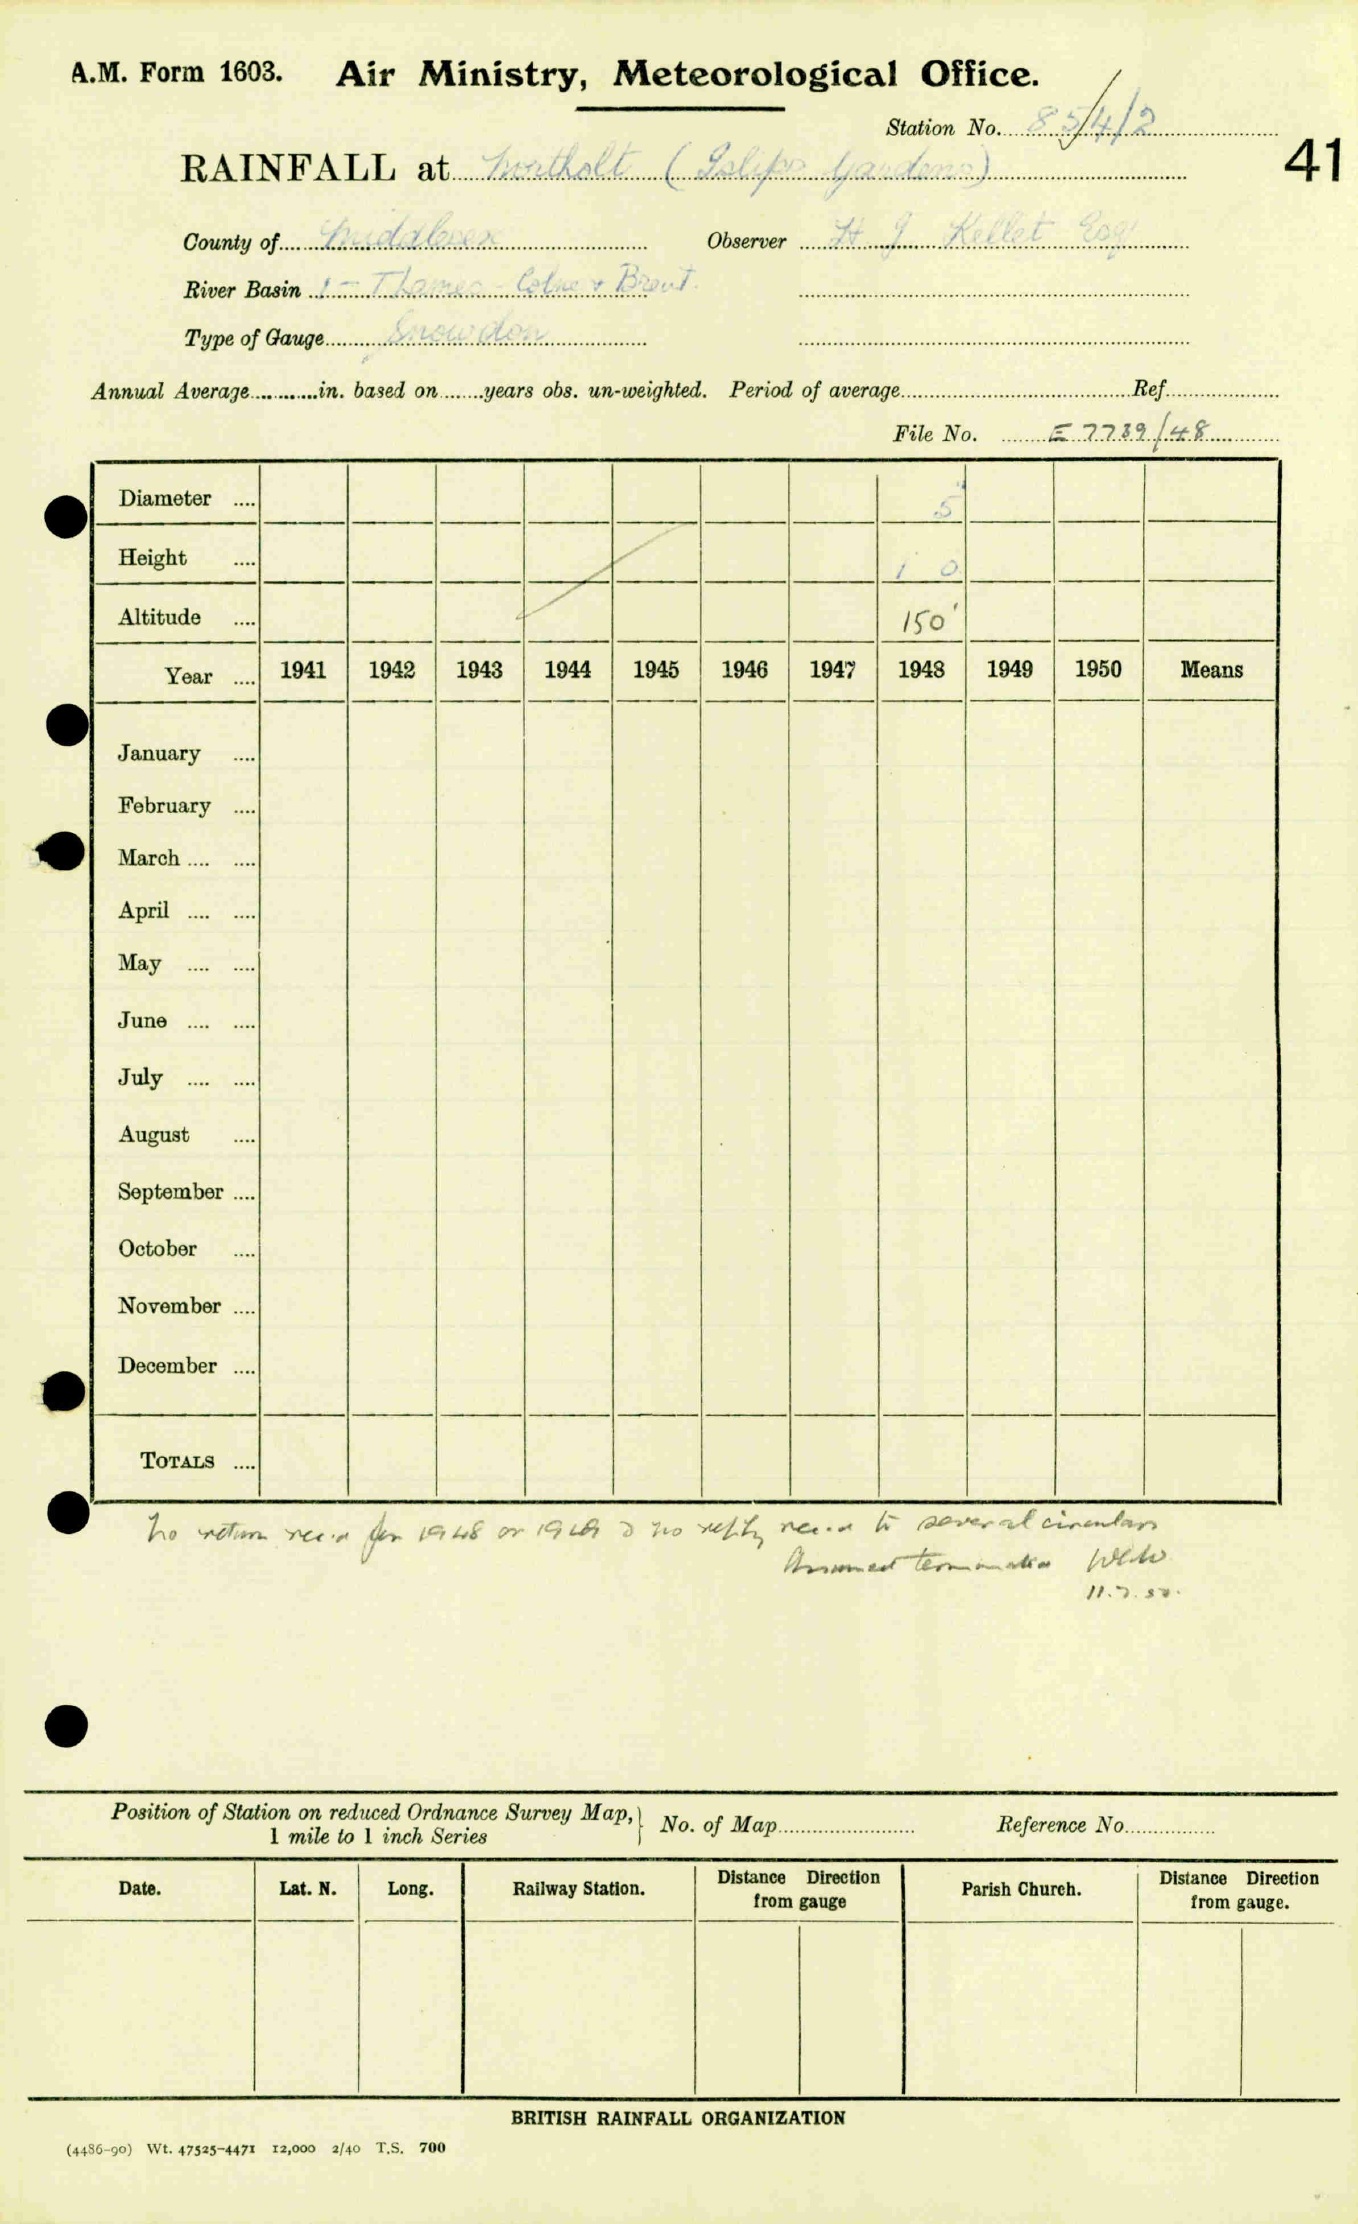 A.M. Form 1603. Air Ministry, Meteorological Office.
Station No. 85/4/2
41
RAINFALL at Northolt (Islips Gardens)
County of Middlesex Observer H J Kellet Esq
River Basin 1 - Thames - Colne & Brent.
Type of Gauge Snowdon
Annual Average............in. based on........years obs. un-weighted. Period of average............ Ref............
File No. E 7739/48
Diameter .... 5"
Height .... 1 0
Altitude .... 150'
Year .... 1941 1942 1943 1944 1945 1946 1947 1948 1949 1950 Means
January ....
February ....
March .... ....
April .... ....
May .... ....
June .... ....
July .... ....
August ....
September ....
October ....
November ....
December ....
TOTALS ....
No return rec.d for 1948 or 1949 & no reply rec.d to several circulars
Assumed terminated
11.7.50.
Position of Station on reduced Ordnance Survey Map, } No. of Map............ Reference No............
1 mile to 1 inch Series
Date. Lat. N. Long. Railway Station. Distance Direction from gauge Parish Church. Distance Direction from gauge.
BRITISH RAINFALL ORGANIZATION
(4486-90) Wt. 47525-4471 12,000 2/40 T.S. 700